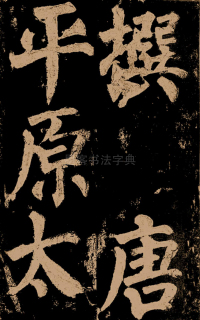 撰 唐
平原太
书法字典